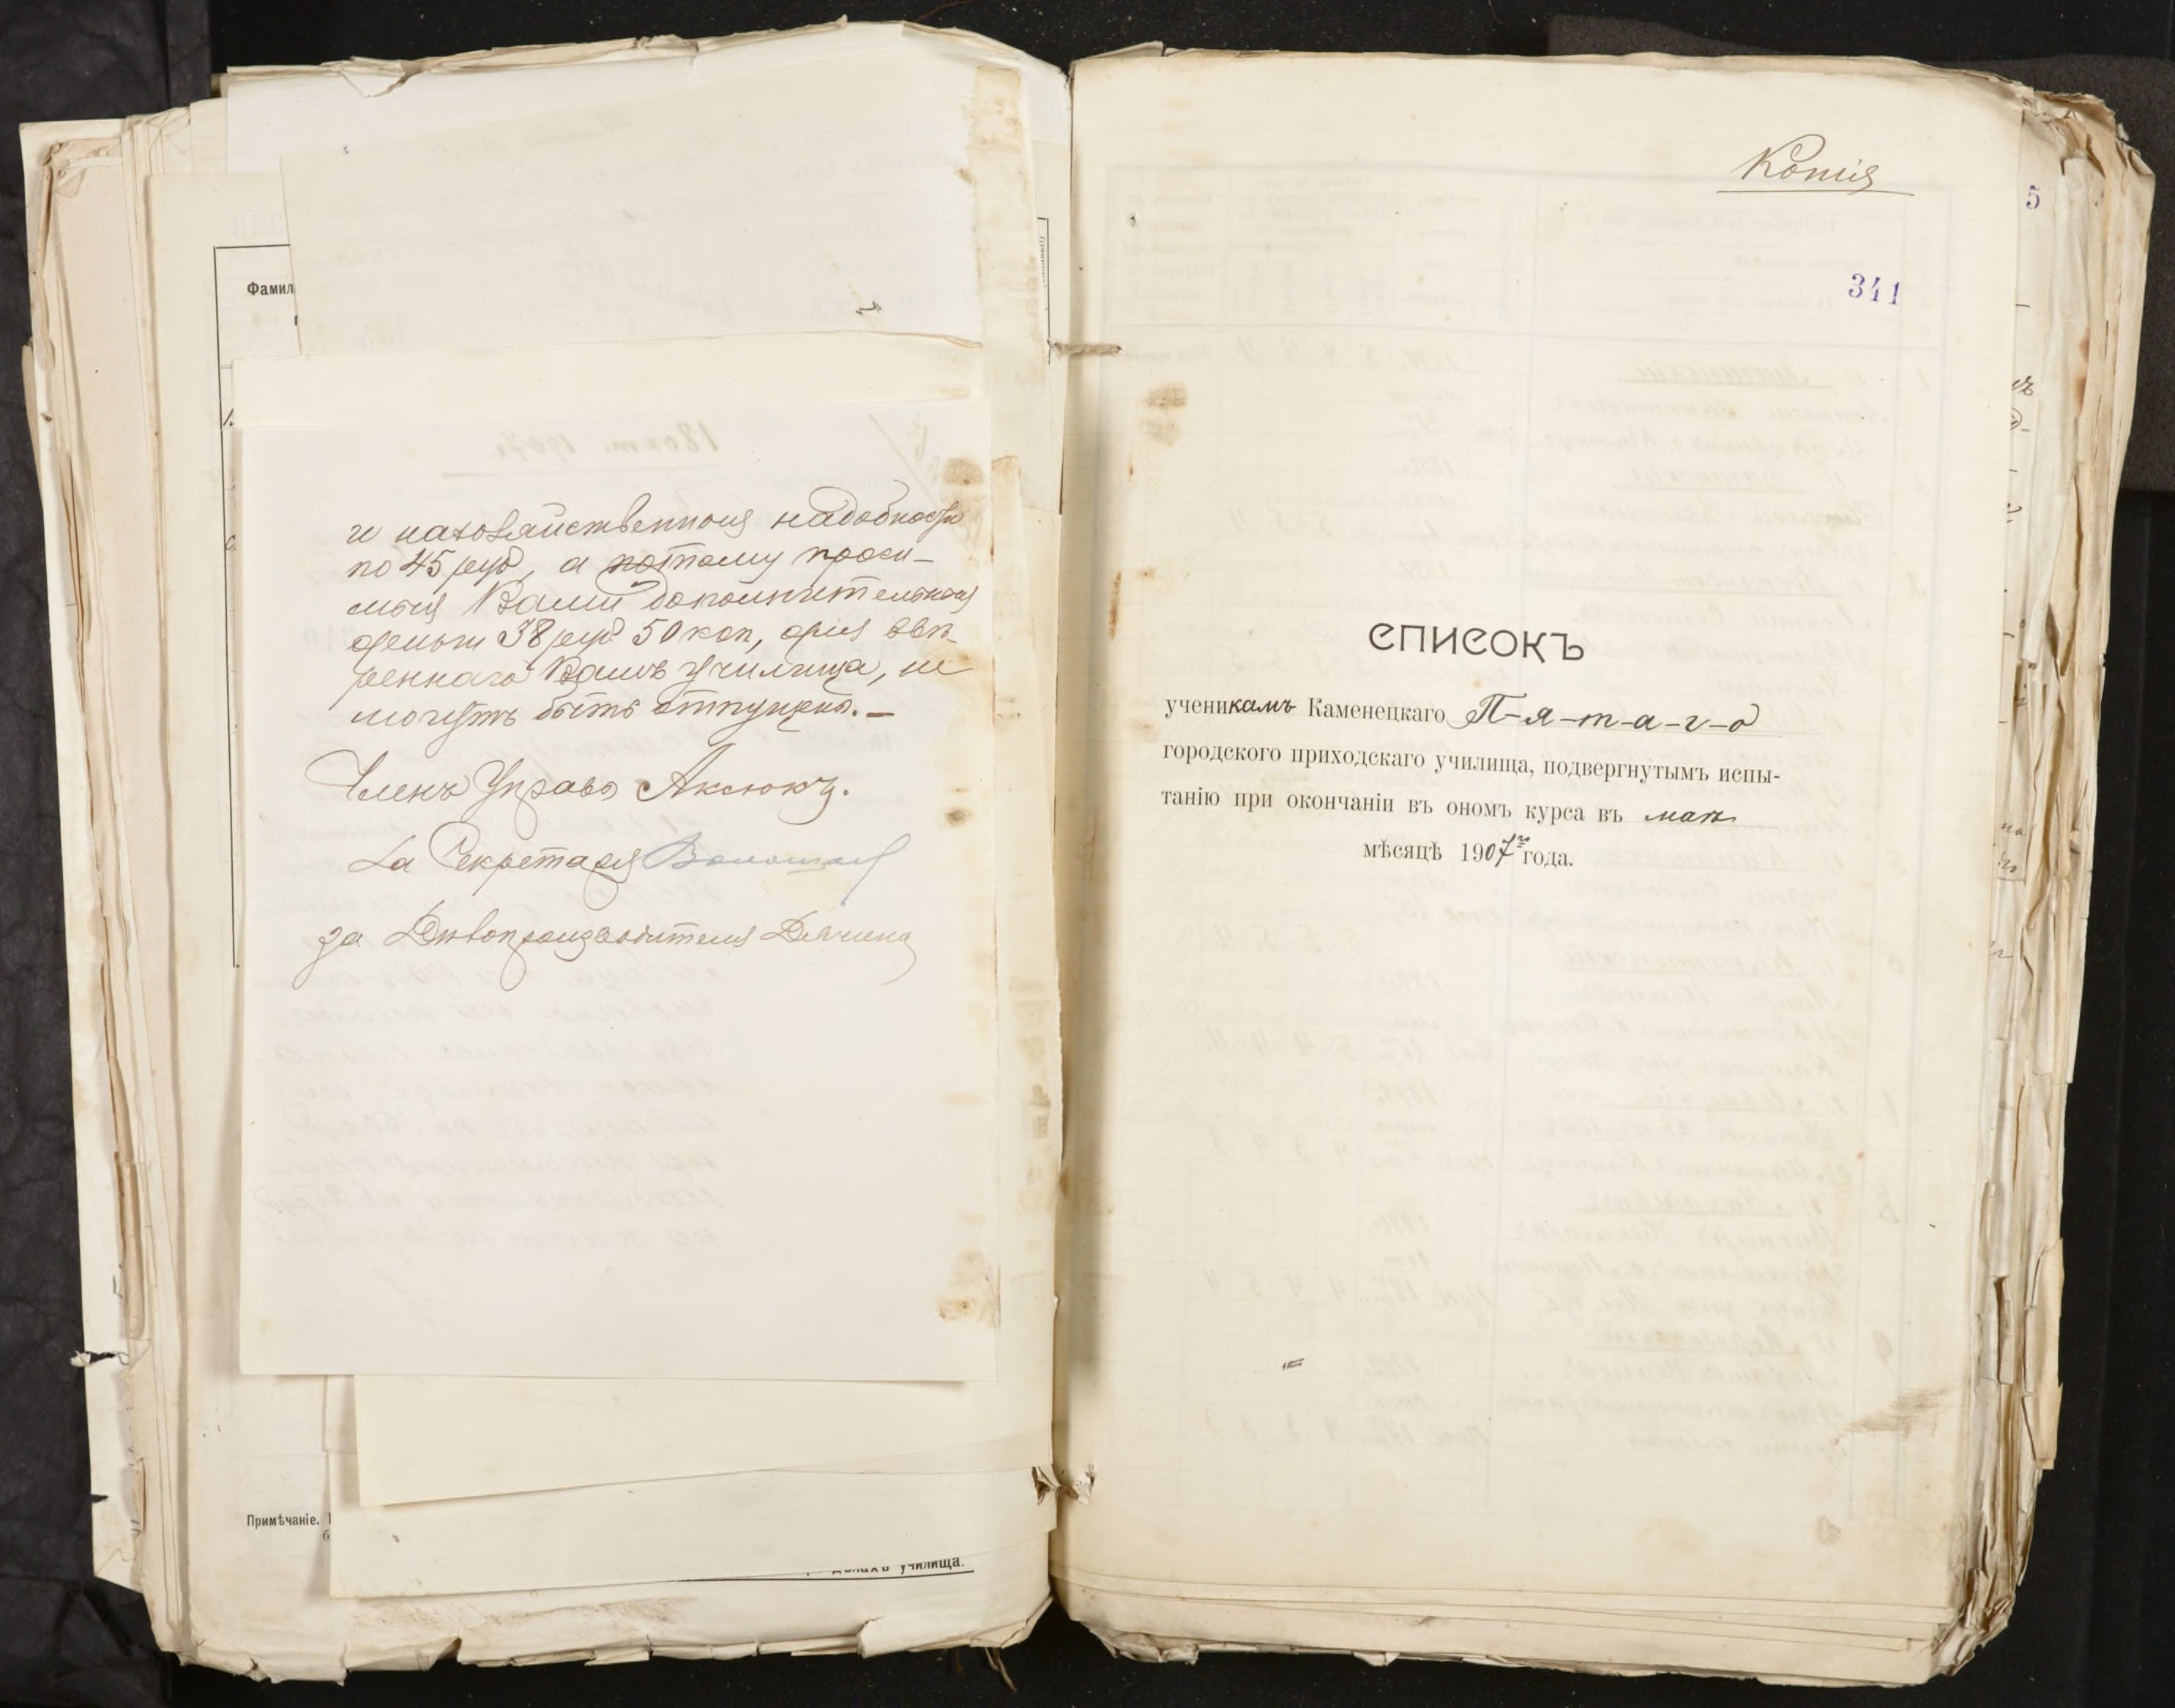 Фамил
и на хозяйственныя надобности
по 45 руб, а потому проси-
мыя Вами дополнительныя
деньги 38 руб 50 коп, для ввѣ-
реннаго Вамъ училища, не
могутъ быть отпущены. —
Членъ Управы Аксюкъ.
За Секретаря
за Дѣлопроизводителя
Примѣчаніе.
училища.
Копія
341
СПИСОКЪ
ученикамъ Каменецкаго П-я-т-а-г-о
городского приходскаго училища, подвергнутымъ испы-
танію при окончаніи въ ономъ курса въ маѣ
мѣсяцѣ 1907 г года.
5